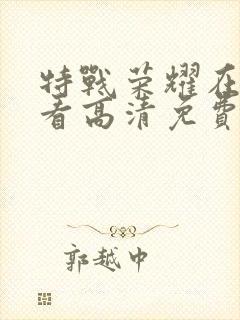 特戰荣耀在
看高清免費
郭越中